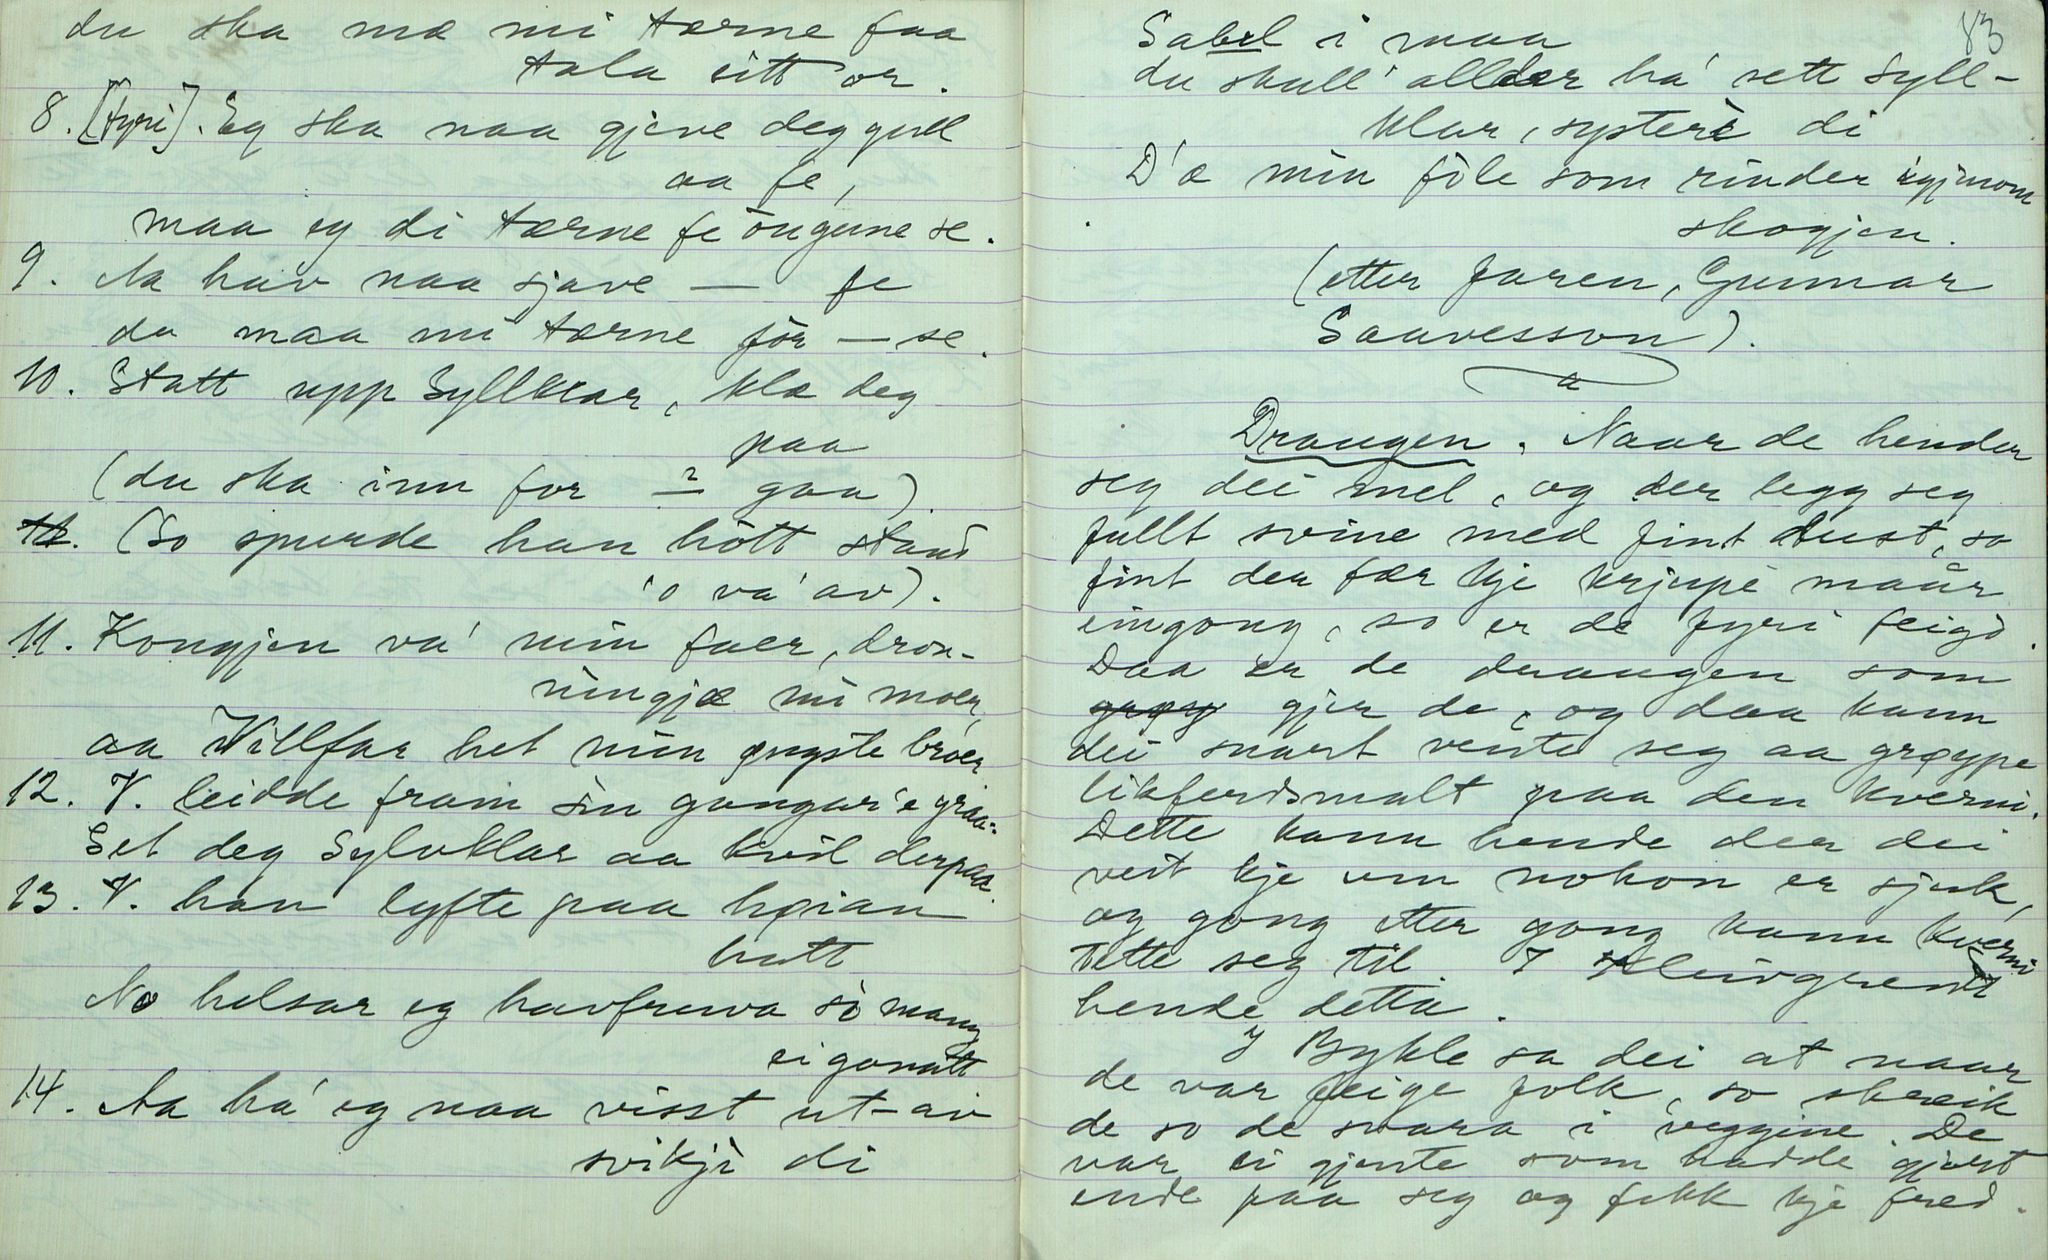 du ska mæ mi tærne faa
tala eitt or.
8. [fyri]. Eg ska naa gjeve deg gull
aa fe,
maa eg di tærne fe ōugune se.
9. Aa hav naa sjave — fe
du maa mi tærne fōr — se.
10. Statt upp Syllklar, klæ deg
paa
(du ska inn for — ? gaa)
(So spurde han hōtt stand
'o va' av).
11. Kongjen va' min faer, dron-
ningjæ mi moer,
aa Villfar het min yngste broer
12. V. leidde fram sin gangar'e graa:
Set deg Sylvklar aa kvil derpaa.
13. V. han lyfte paa høian
hatt
No helsar eg havfruva so mang
ei gonatt
14. Aa ha' eg naa visst ut-av
svikji di
83
Sabel i maa
du skull' allder ha' sett Syll-
klar, systeri di
D'æ min fole som rinder igjenom
skogjen.
(etter faren, Gunnar
Saavesson).
Draugen. Naar de hender
seg dei mel, og der legg seg
fullt svine med fint dust, so
fint der fær kje krjupe maur
eingong, so er de fyri feigd.
Daa er de draugen som
gjer de, og daa kann
dei snart vente seg aa grøype
likferdsmalt paa den kverni.
Dette kann hende der dei
veit kje um nokon er sjuk,
og gong etter gong kann kverni
tette seg til. I Kleivgrend
hende detta.
I Bykle sa dei at naar
de var feige folk, so skreik
de so de svara i veggjine. De
var ei gjente som hadde gjort
ende paa seg og fekk kje fred.